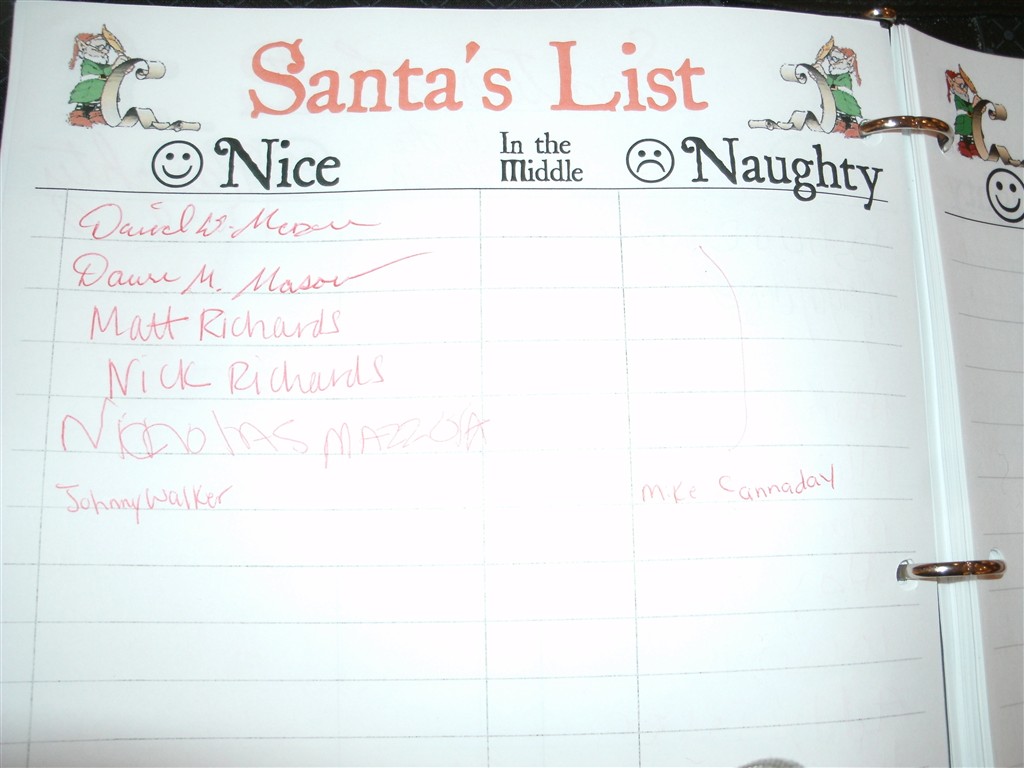 Santa's List
Nice In the Middle Naughty
David W. Mason
Dawn M. Mason
Matt Richards
Nick Richards
Nicholas MAZZOLA
Johnny Walker Mike Cannaday